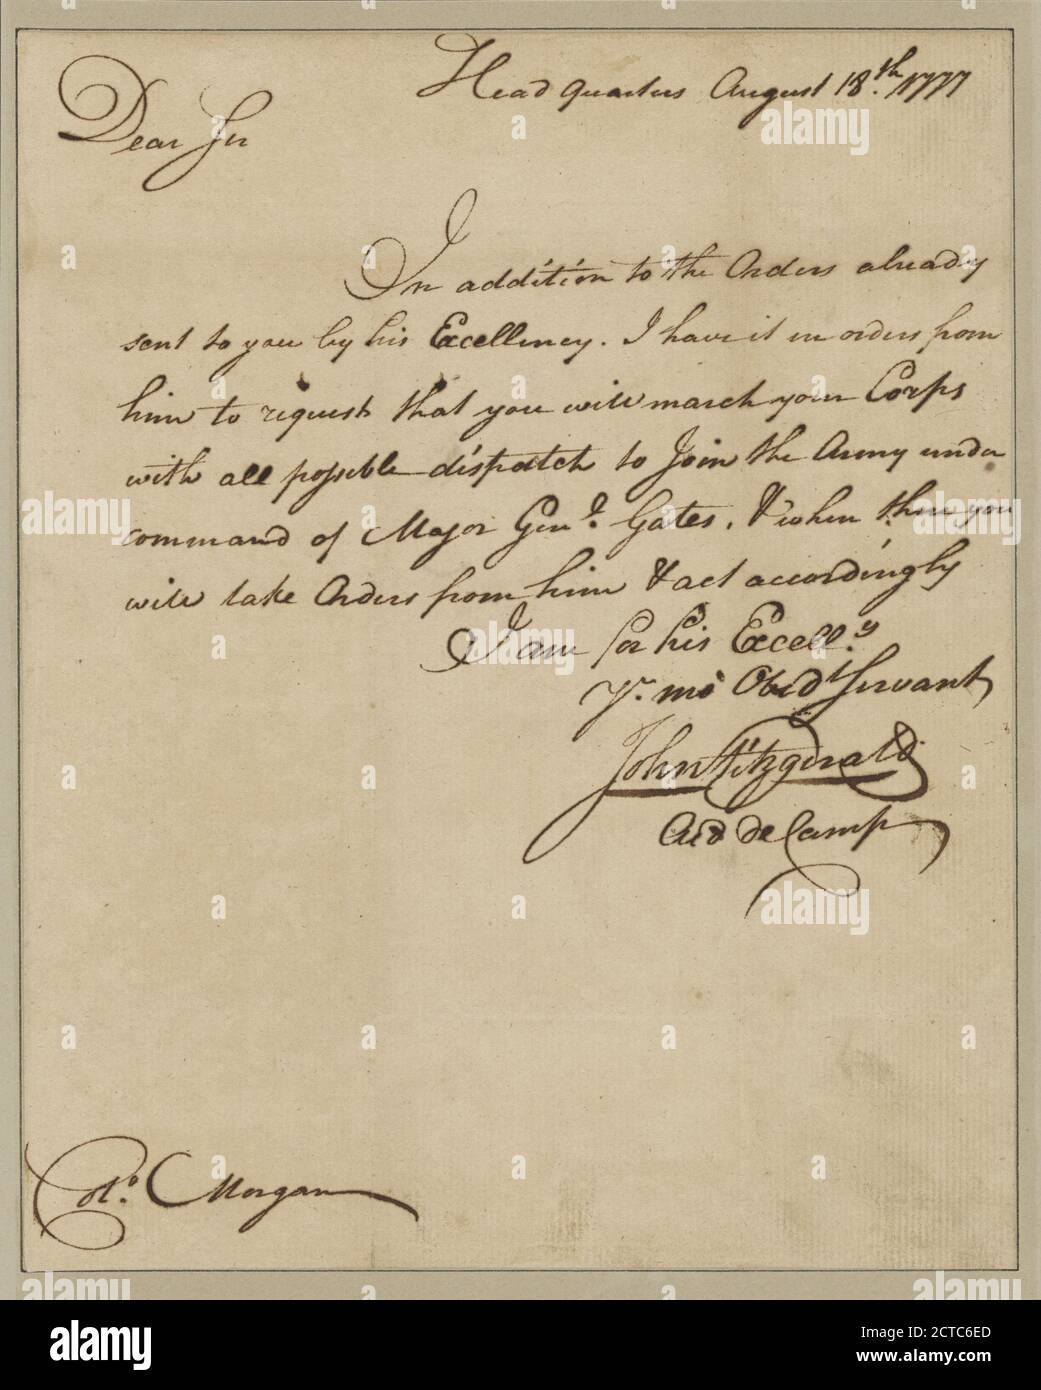 Head Quarters August 18.th 1777
Dear Sir
In addition to the Orders already
sent to you by his Excellency. I have it in orders from
him to request that you will march your Corps
with all possible dispatch to Join the Army under
command of Major Gen.l Gates, & when there you
will take Orders from him & act accordingly
I am for his Excell.y
Yr. mo Obed.t Servant
John Fitzgerald
Aid de Camp
Col.o Morgan
alamy
Image ID: 2CTC6ED
www.alamy.com